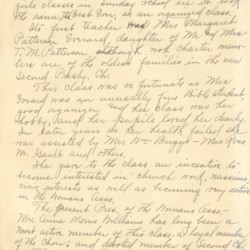 girls classes in Sunday School
the name, the Best Ever, as an organized class.
Its first teacher was Mrs Margaret
Patterson daughter of Mr & Mrs
T. M. Patterson, although not charter mem-
bers are of the oldest families in the new
Second Presby. Ch.
This class was so fortunate as Mrs
was unusually fine Bible student
good organizer and her class was her
hobby, and her pupils loved her dearly.
In later years as her health failed she
was assisted by Mrs Wm Mrs
M. Gault and others.
She gave to the class an incentive to
become interested in church work, missions,
civic interests as well as becoming very active
in the Womans Assn.
The present Pres. of the Womans Assn.
Mrs Anna Morris Williams has long been a
most active member of this class, a loyal member
of the Choir; and devoted member of Second